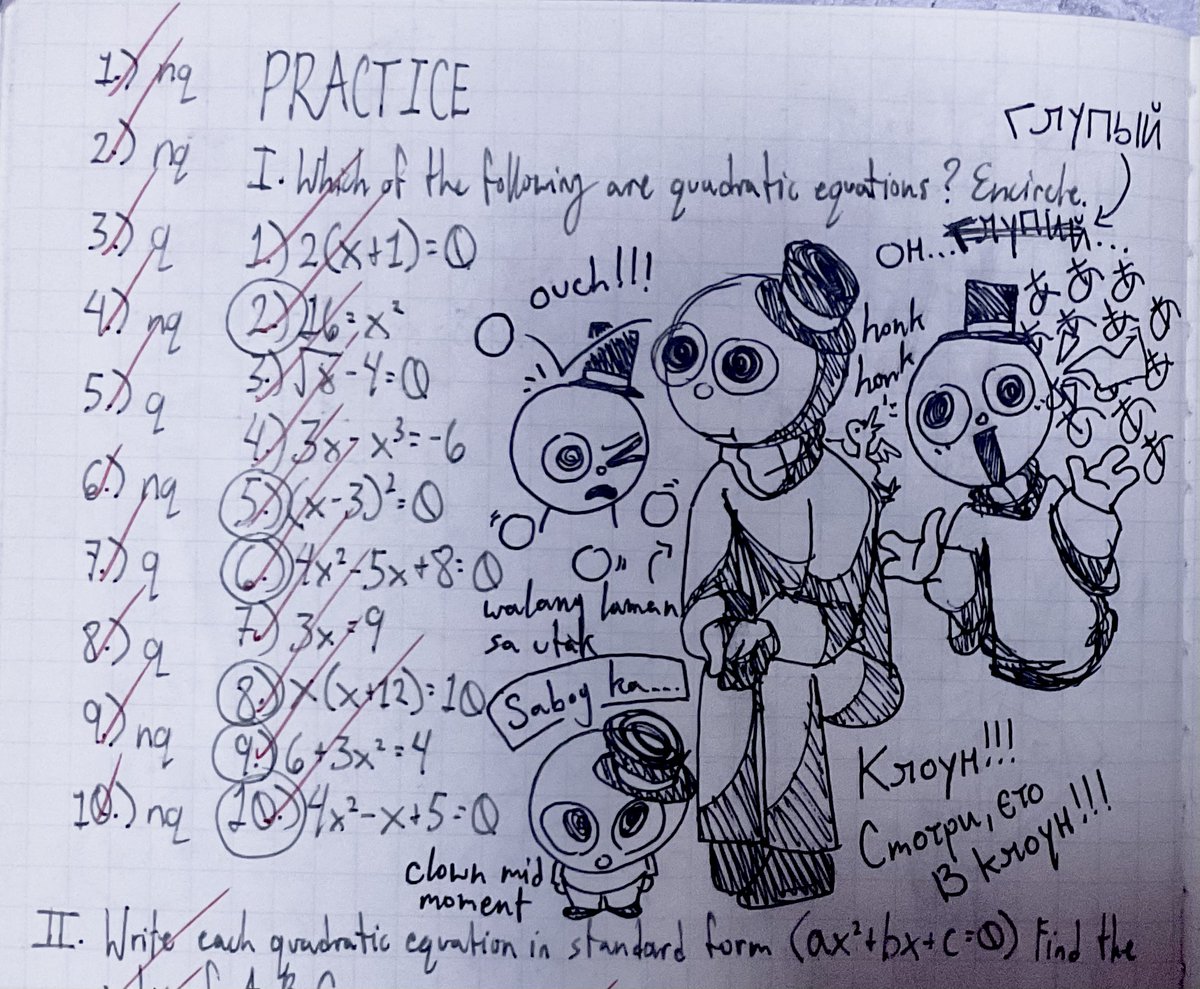 1.) nq
2.) nq
3.) q
4.) nq
5.) q
6.) nq
7.) q
8.) q
9.) nq
10.) nq
PRACTICE
I. Which of the following are quadratic equations? Encircle.
1.) 2(x+1)=0
2.) 16=x²
3.) √x-4=0
4.) 3x-x³=-6
5.) (x-3)²=0
6.) 4x²-5x+8=0
7.) 3x=9
8.) x(x+12)=10
9.) 6+3x²=4
10.) 4x²-x+5=0
глупый
он...глупий...
ouch!!!
honk
honk
あああ
あああああ
あああ
walang laman
sa utak
Sabog ka...
clown mid
moment
Клоун!!!
Смотри, єто
в клоун!!!
II. Write each quadratic equation in standard form (ax²+bx+c=0) Find the